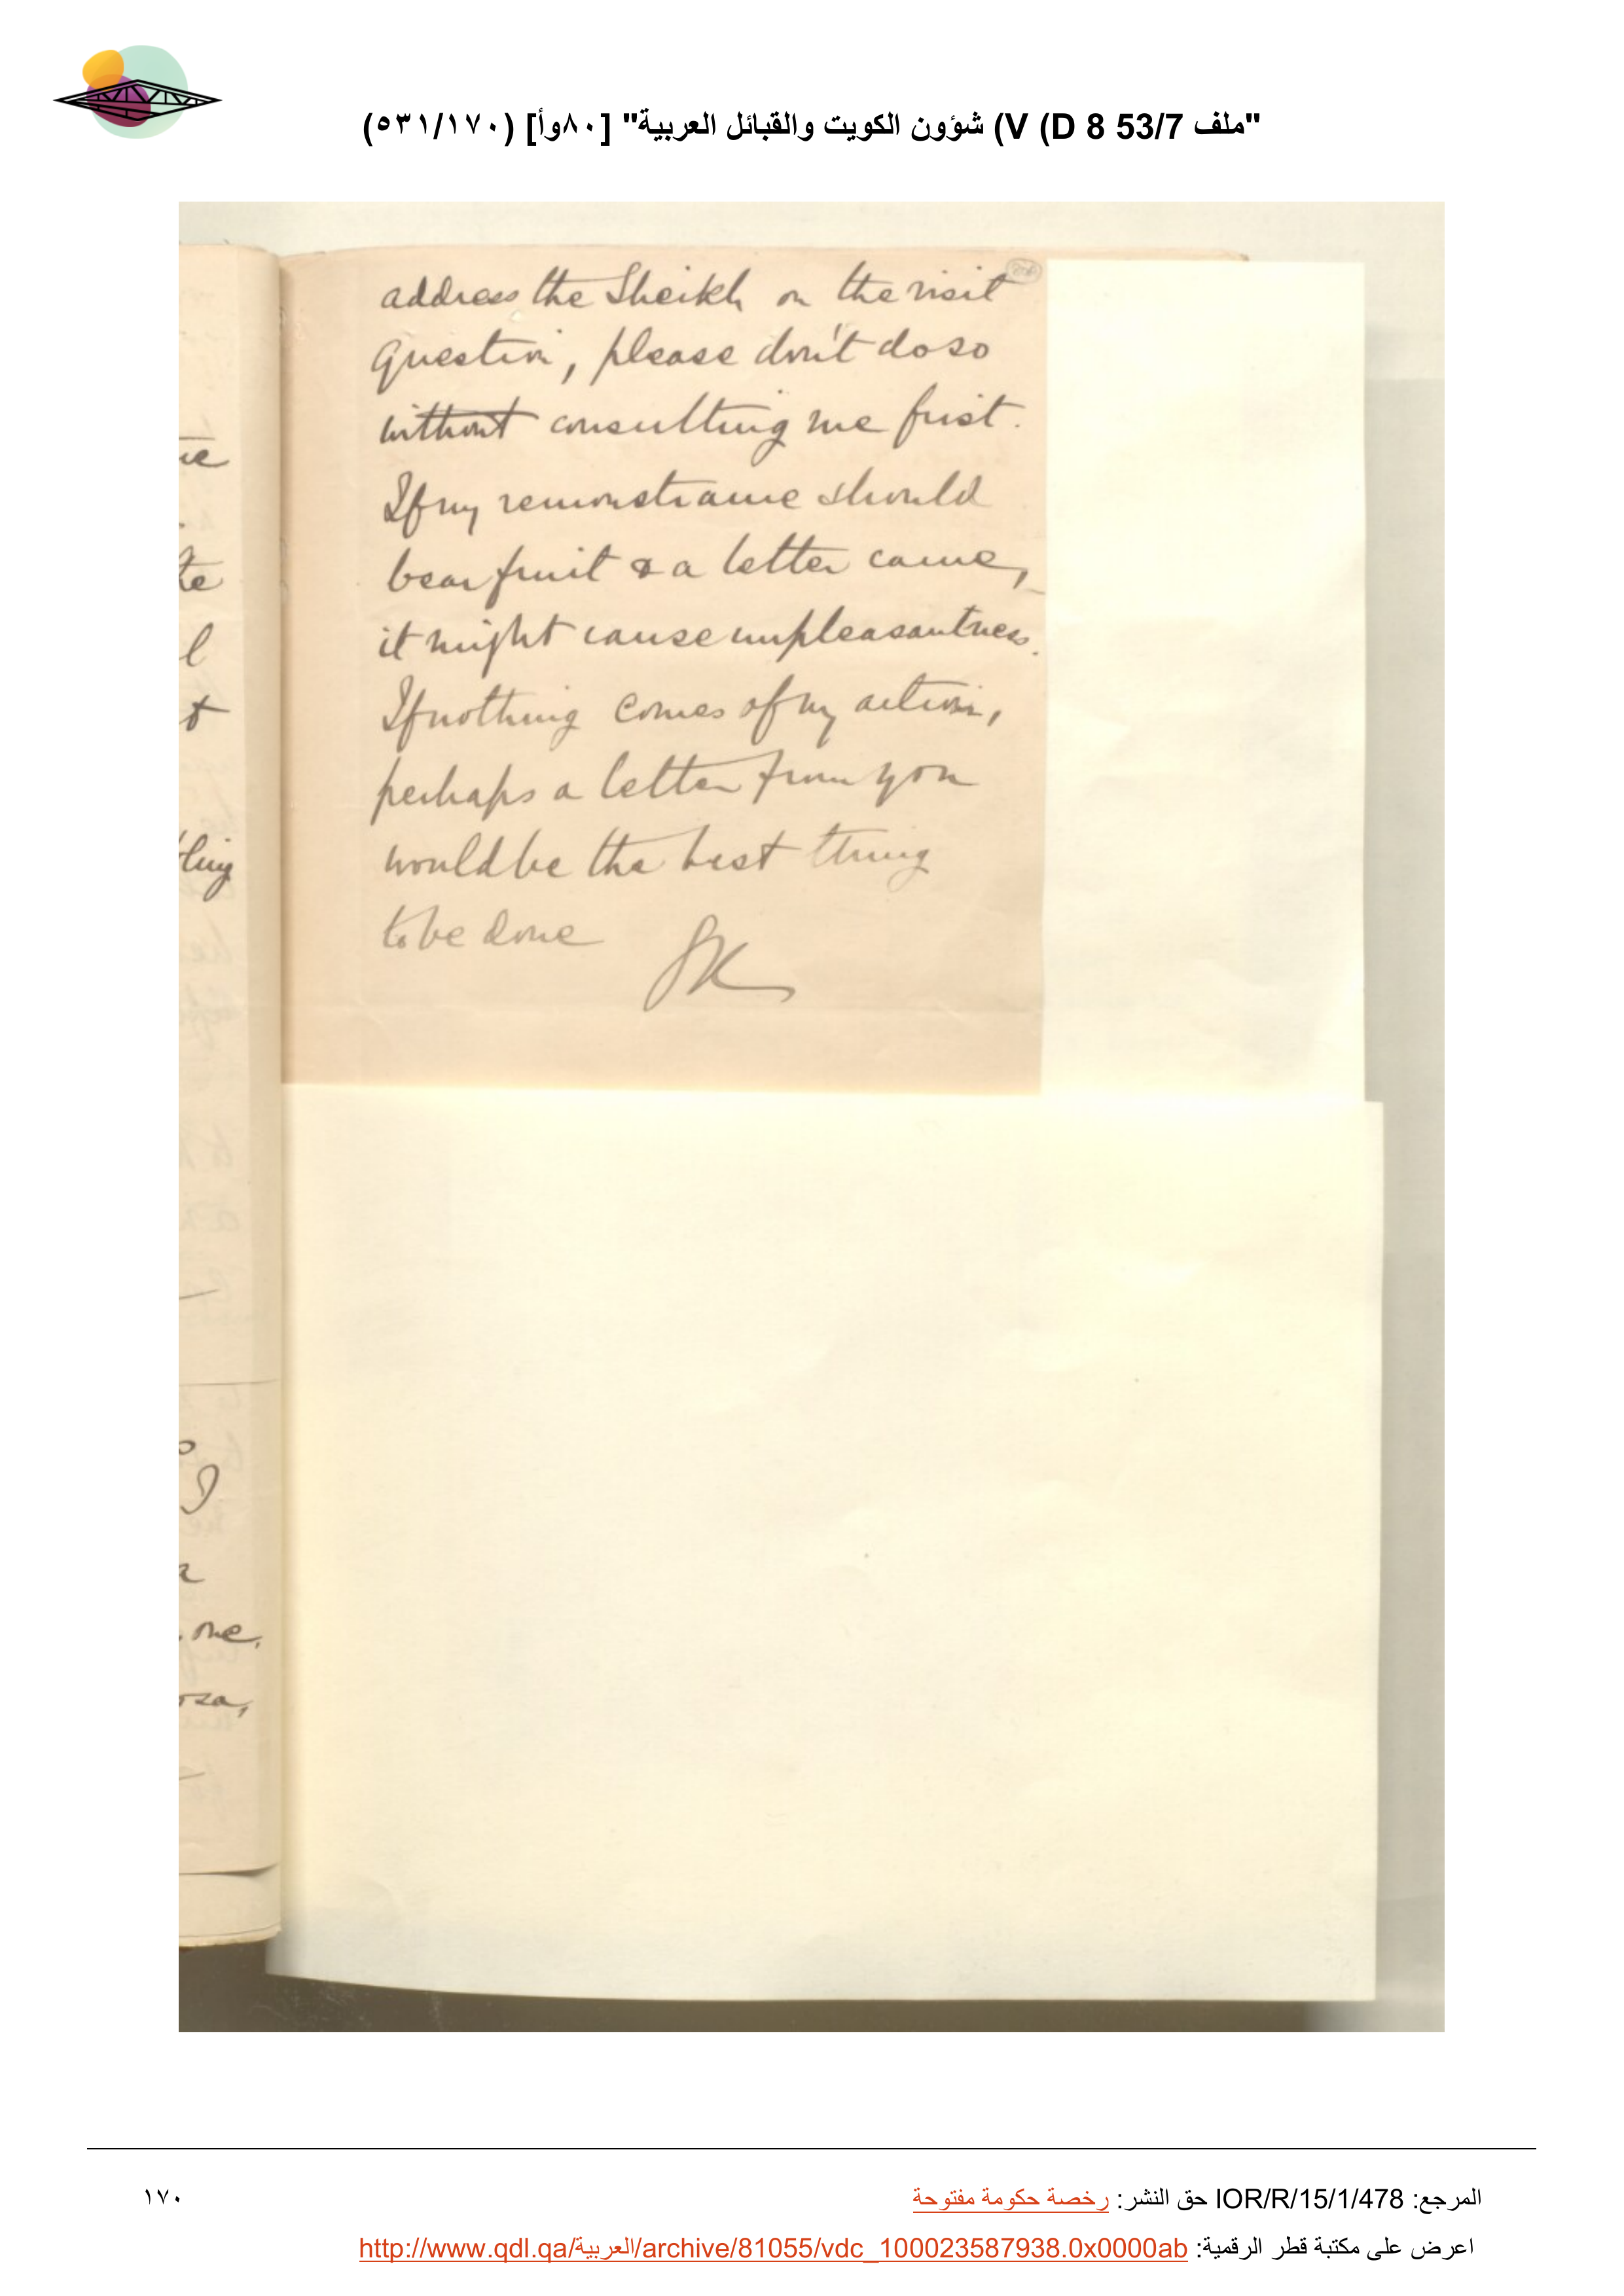 "ملف 53/7 D 8) V) شؤون الكويت والقبائل العربية" [٨٠وأ] (٥٣١/١٧٠)
address the Sheikh on the visit
question, please don't do so
without consulting me first.
If my remonstrance should
bear fruit & a letter came,
it might cause unpleasantness.
If nothing comes of my action,
perhaps a letter from you
would be the best thing
to be done
te
l
me.
المرجع: IOR/R/15/1/478 حق النشر: رخصة حكومة مفتوحة
١٧٠
اعرض على مكتبة قطر الرقمية: http://www.qdl.qa/العربية/archive/81055/vdc_100023587938.0x0000ab